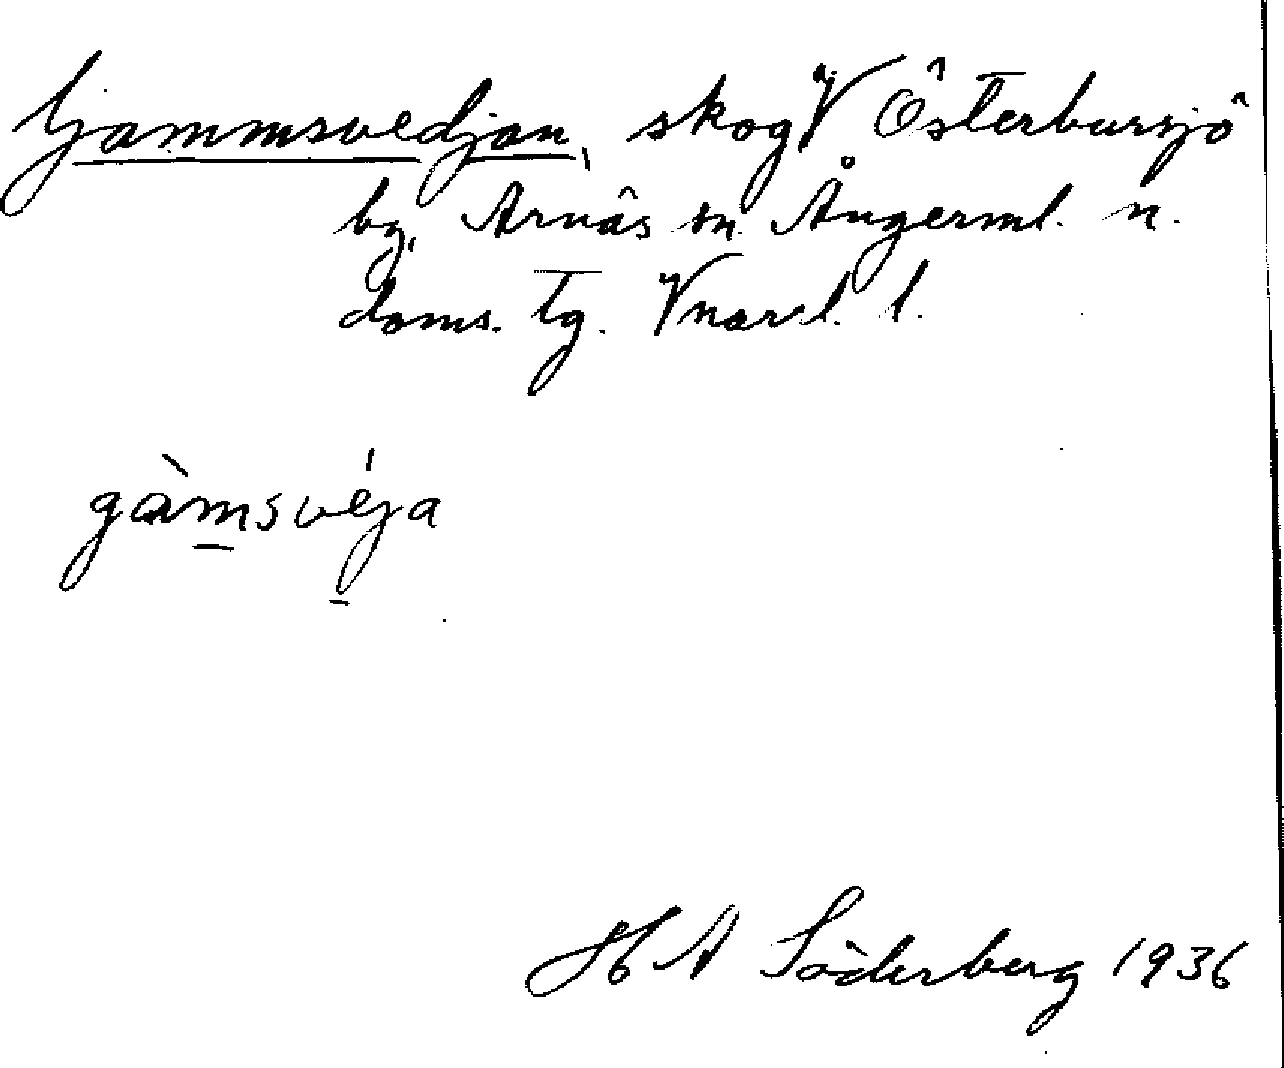 Gammsvedjan, skog V Österbursjö
by, Arnäs sn. Ångerml. n.
doms. tg. Vnorrl. l.
gàmsvéja
H A Söderberg 1936